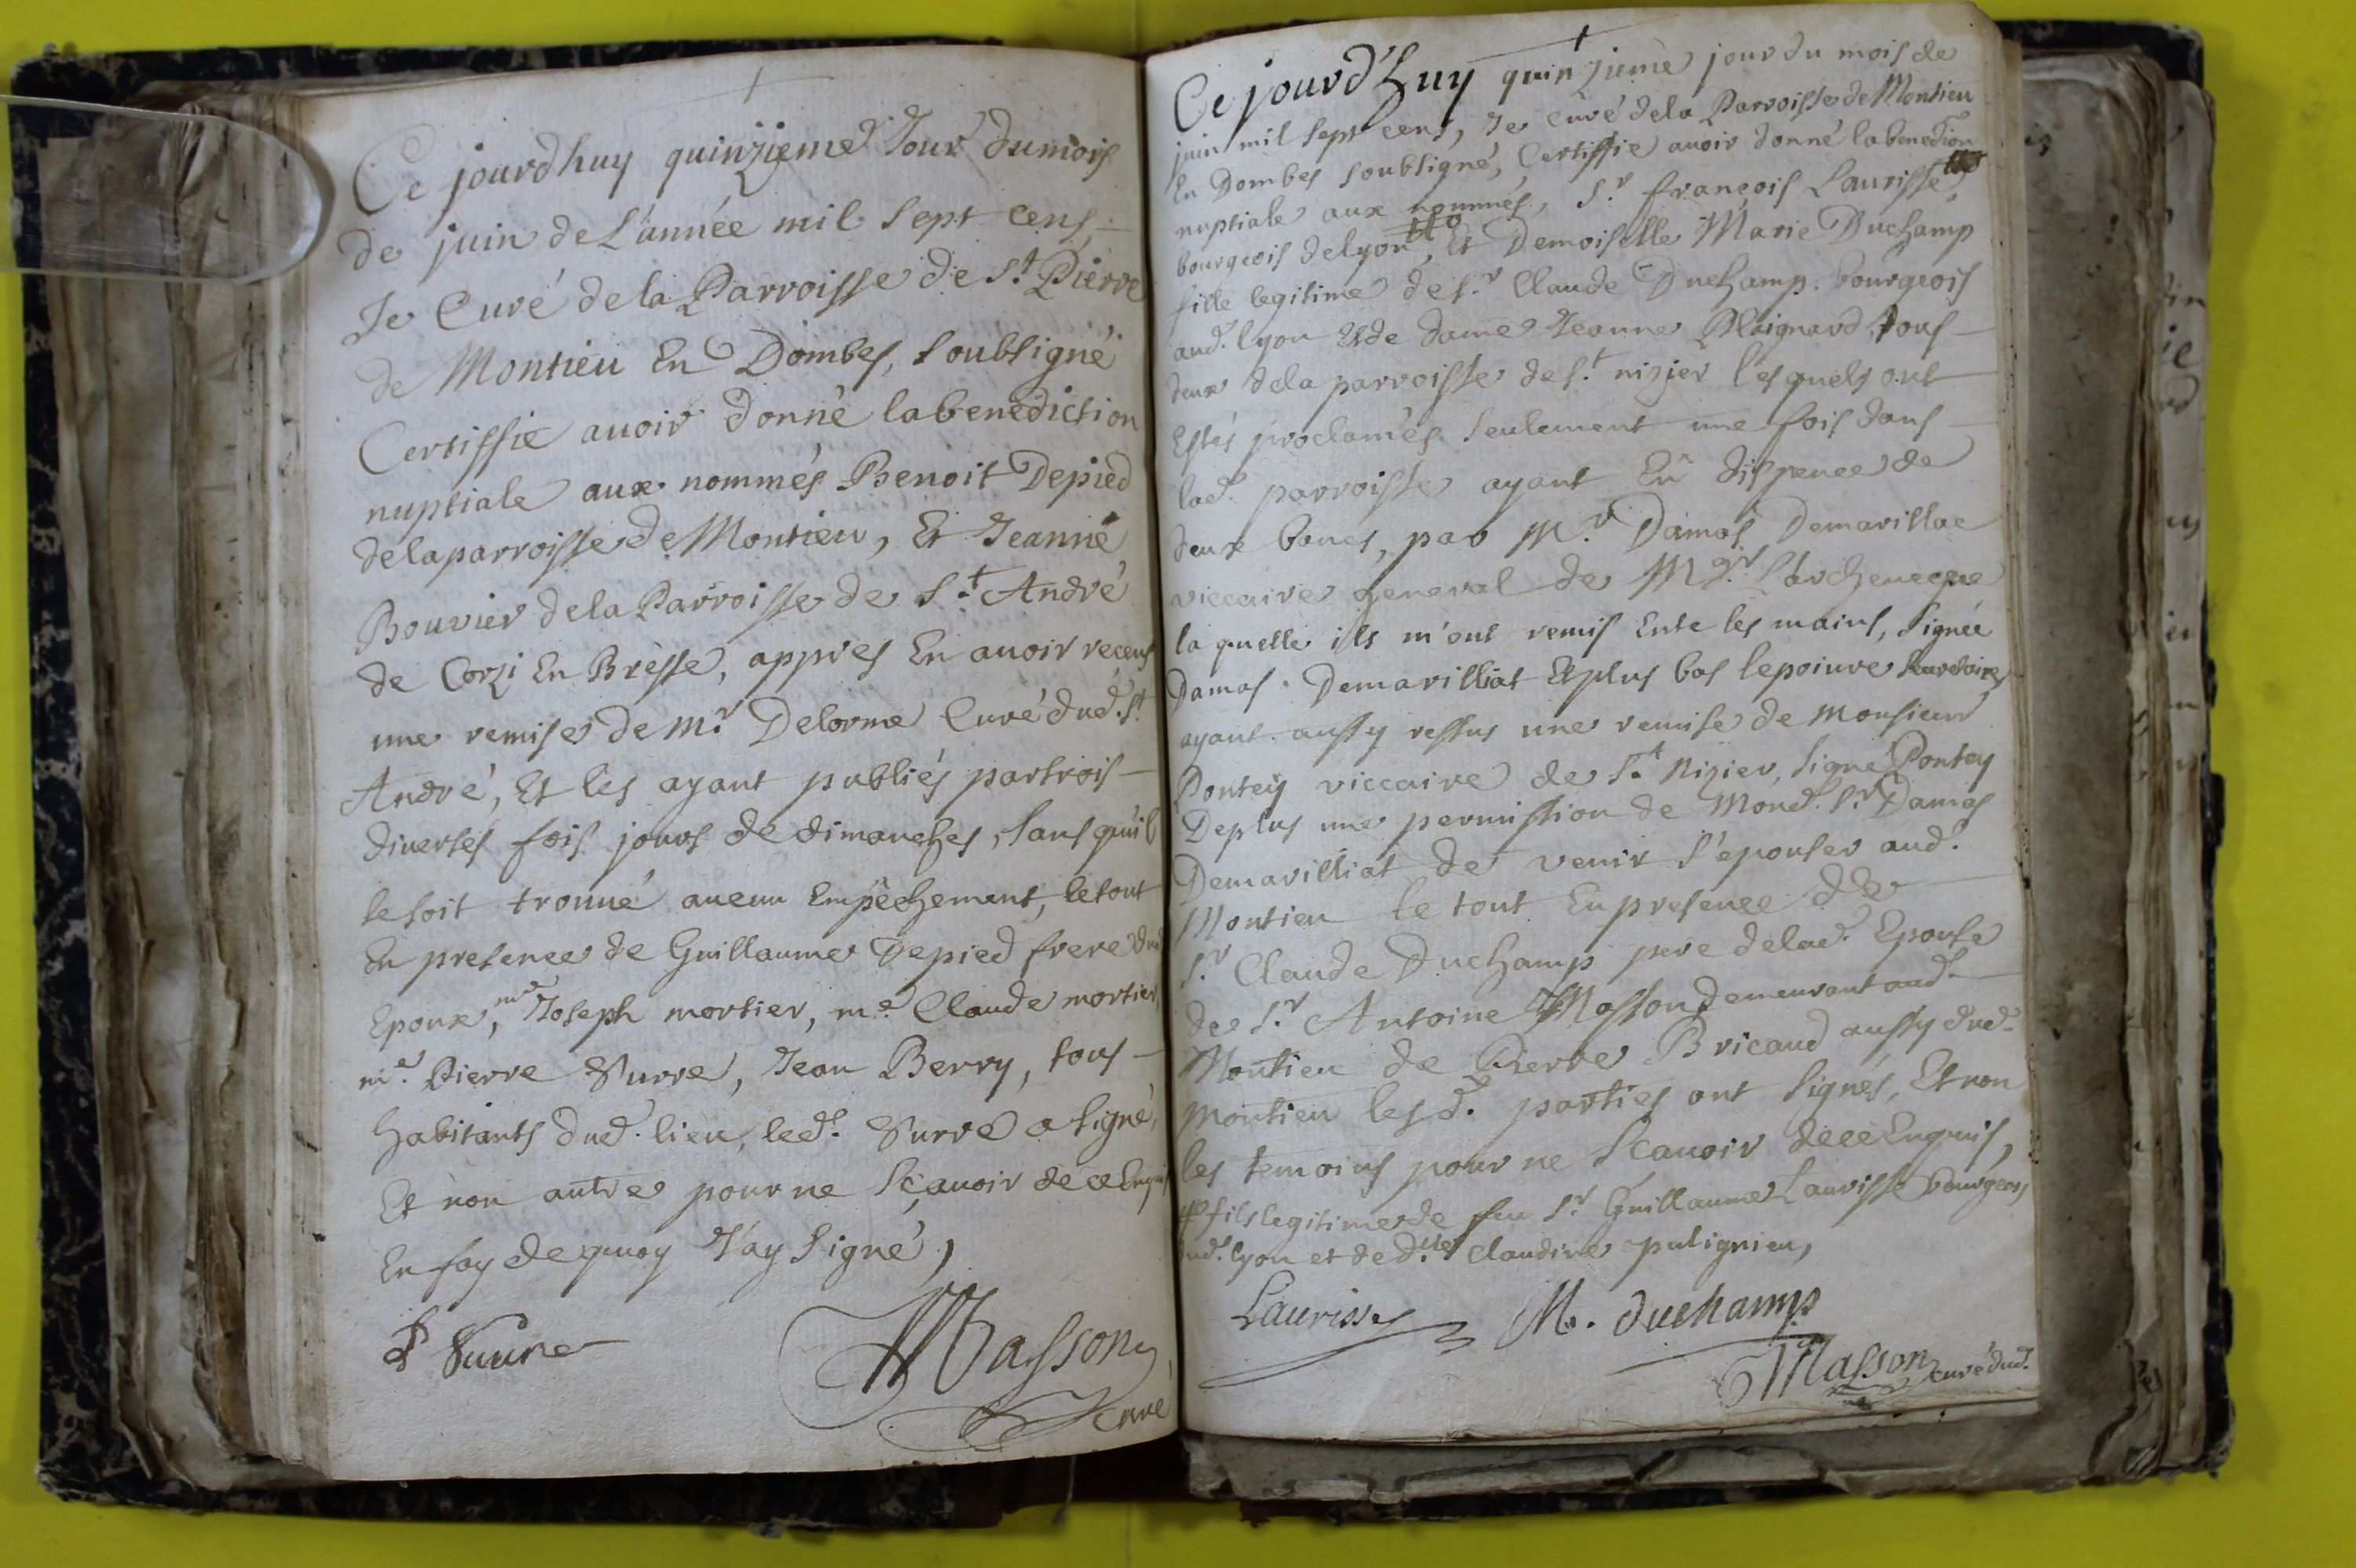 Ce jourdhuy quinzieme Jour du mois
de juin de L'année mil sept cens
Je Curé de la Parroisse de St. Pierre
de Montieu En Dombes, soubsigné
Certiffie auoir donné la benediction
nuptiale aux nommés Benoit Depied
de la parroisse de Montieu, Et Jeanne
Bouvier de la Parroisse de St. André
de Corzi En Bresse, appres En auoir receus
une remise de mr. Delorme Curé dud. St.
André, Et les ayant publiés par trois
diverses fois jours de dimanches, sans qu'il
se soit trouué aucun Empêchement, le tout
En presence de Guillaume Depied frere dud
Epoux, me Joseph mortier, me. Claude mortier
me. Pierre Surre, Jean Berry, tous
habitants dud. lieu, led. Surre a signé,
Et non autres pour ne sçauoir de ce Enquis
En foy de quoy J'ay signé,
P Suure
Masson
curé
Ce jourd'huy quinzieme jour du mois de
juin mil sept cens, Je curé de la Parroisse de Montieu
En Dombes soubsigné, Certiffie auoir donné la benediction
nuptiale aux nommés, Sr. françois Laurisse
bourgeois de lyon, Et Demoiselle Marie Duchamp
fille legitime de Sr. Claude Duchamp bourgeois
aud. lyon Et de dame Jeanne Plaignard tous
deux de la parroisse de St. nizier lesquels ont
Estés proclamés seulement une fois dans
lad. parroisse ayant Eu dispence de
deux bancs, par Mr. Damas Demarillac
viccaire general de Mgr. L'archeuecque
laquelle ils m'ont remis Entre les mains, signée
Damas Demarilliat Et plus bas lepoiure secretaire,
ayant aussy ressus une remise de Monsieur
Pontey viccaire de St. Nizier, signé Pontey
De plus une permission de Mond. Sr. Damas
Demarilliat de venir s'epouser aud.
Montieu le tout En presence de
Sr. Claude Duchamp pere de lad. Epouse
de Sr. Antoine Masson demeurant aud.
Montieu de Pierre Bricaud aussy dud.
Montieu lesd. parties ont signés, Et non
les temoins pour ne sçauoir de ce Enquis,
fils legitime de feu Sr. Guillaume Laurisse bourgeois
aud. lyon et de dlle. Claudine pulignieu,
Laurisse M. duchamp
Masson curé dud.